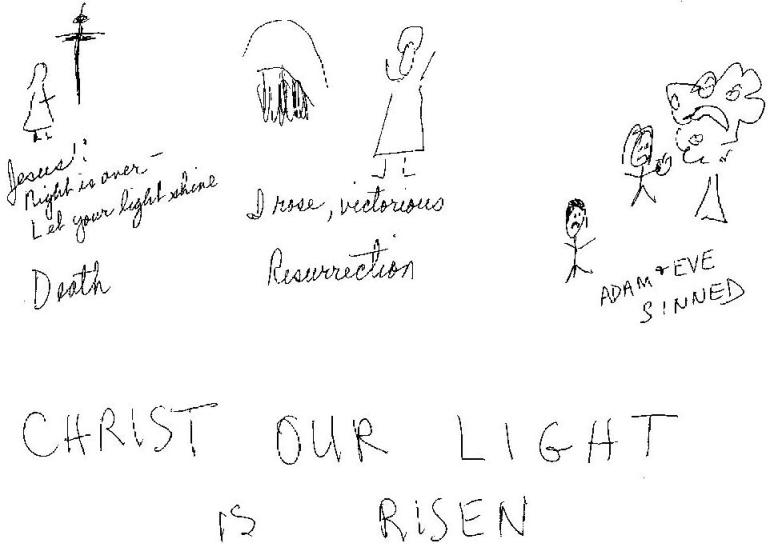 Jesus!:
Night is over—
Let your light shine
Death
I rose, victorious
Resurrection
ADAM & EVE
SINNED
CHRIST OUR LIGHT
iS RiSEN